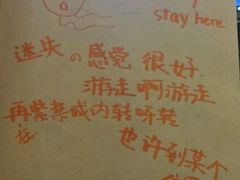 stay here
迷失の感觉 很好.
游走啊游走
再紫禁城内转呀转
在.
也许到某个